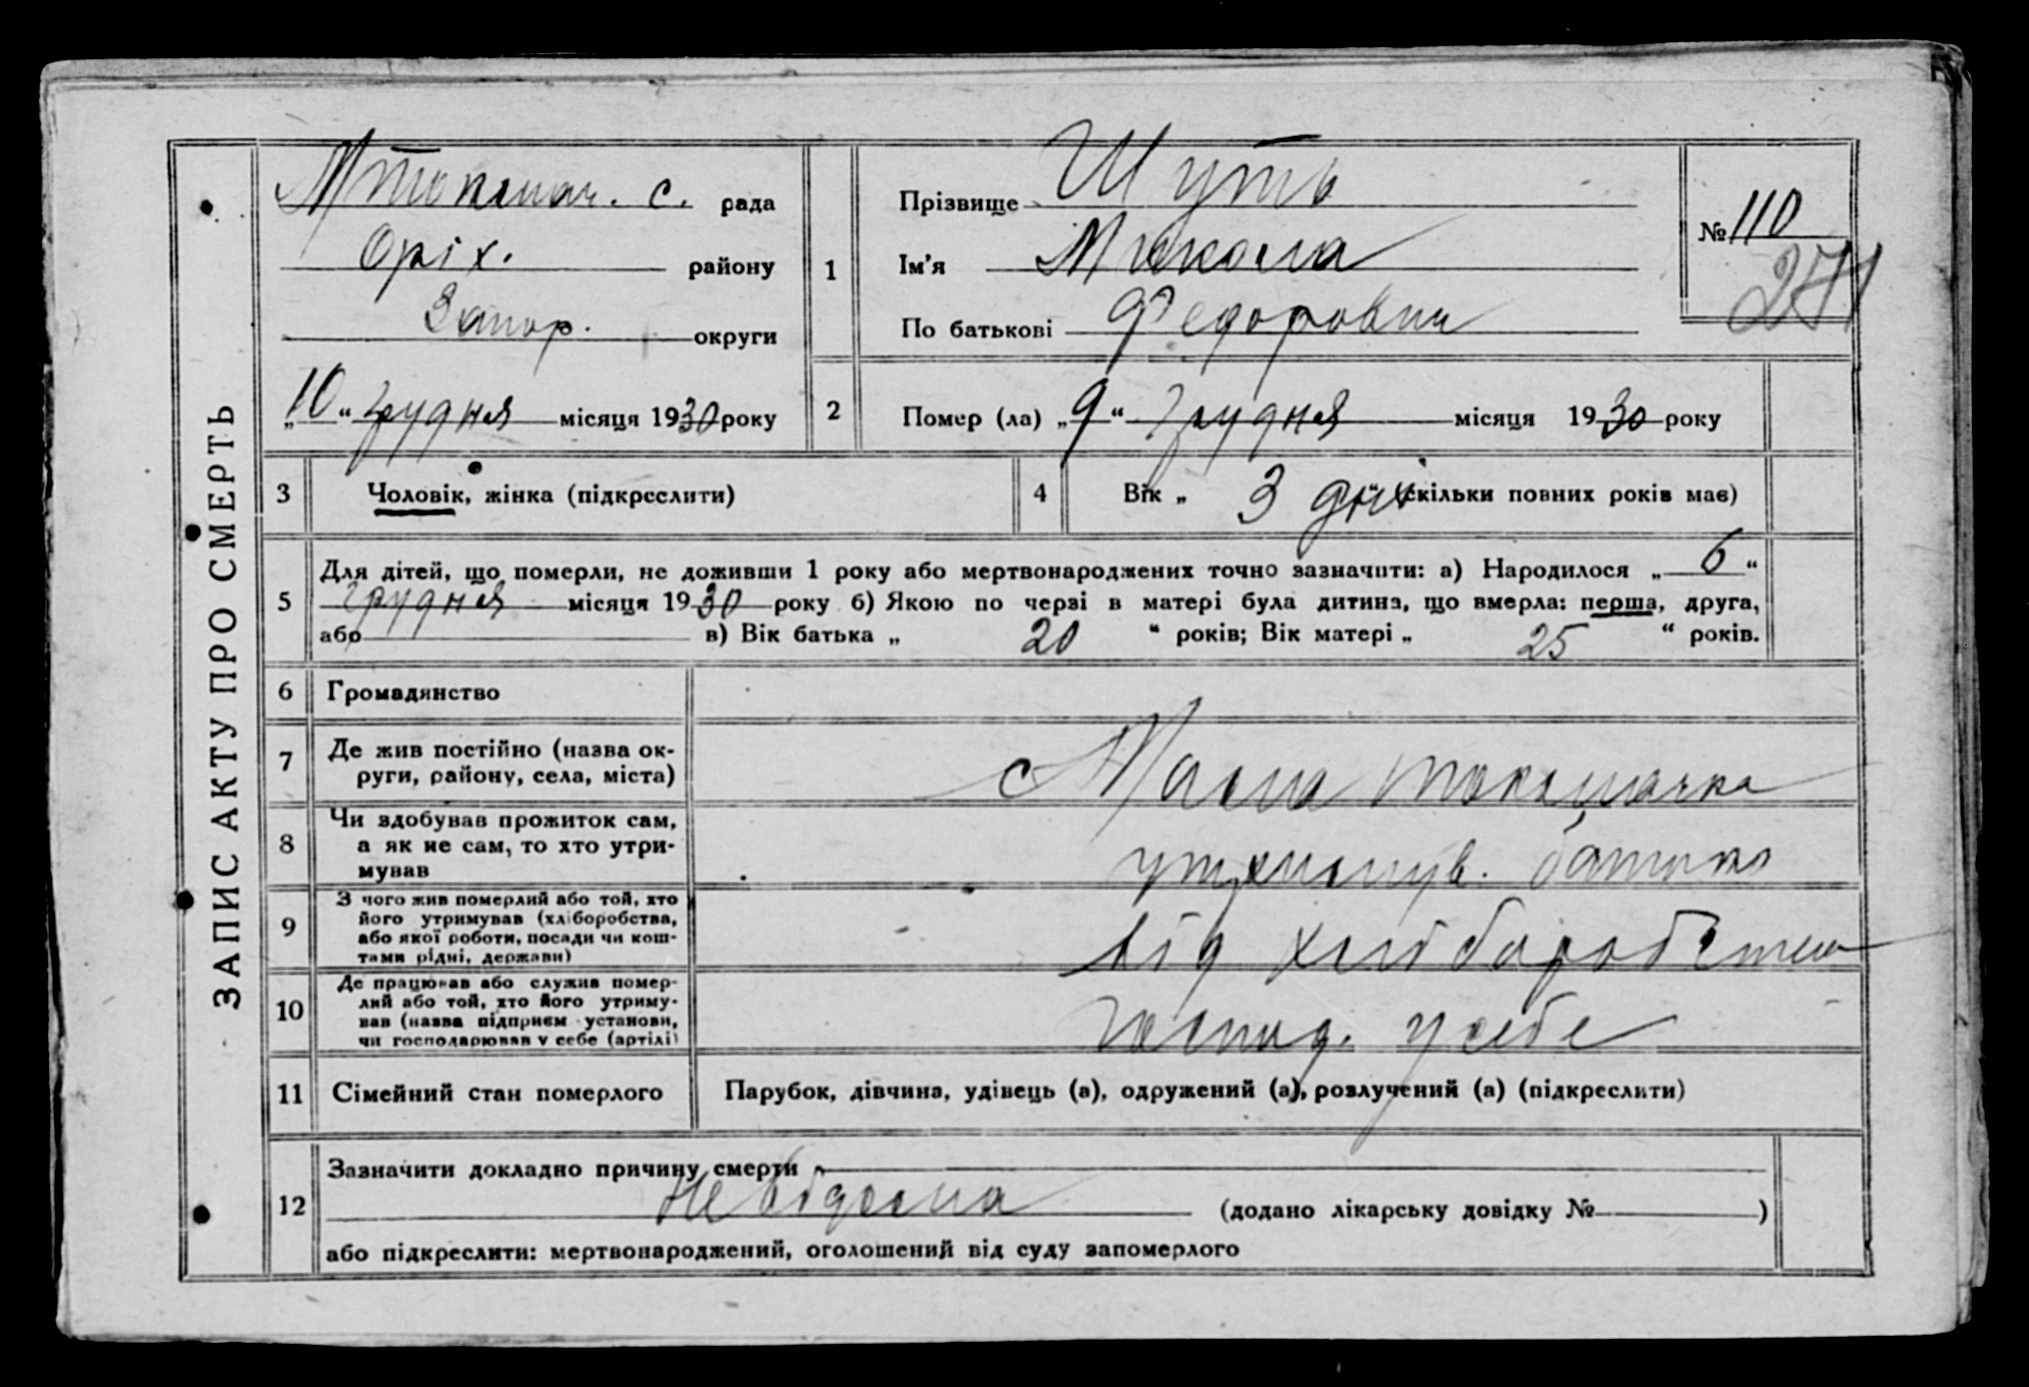 ЗАПИС АКТУ ПРО СМЕРТЬ
МТокмач. с. рада
Оріх. району
Запор. округи
„10“ грудня місяця 1930 року
1
Прізвище Шуть
Ім'я Микола
По батькові Федорович
№ 110
271
2
Помер (ла) „9“ грудня місяця 1930 року
3 Чоловік, жінка (підкреслити)
4 Вік „ 3 дні “ скільки повних років має)
5 Для дітей, що померли, не доживши 1 року або мертвонароджених точно зазначити: а) Народилося „ 6 “
грудня місяця 1930 року б) Якою по черзі в матері була дитина, що вмерла: перша, друга,
або в) Вік батька „ 20 “ років; Вік матері „ 25 “ років.
6 Громадянство
7 Де жив постійно (назва ок-
руги, району, села, міста)
с Мала Токмачка
8 Чи здобував прожиток сам,
а як не сам, то хто утри-
мував
утримув. батько
9 З чого жив померлий або той, хто
його утримував (хліборобства,
або якої роботи, посади чи кош-
тами рідні, держави)
від хліборобства
10 Де працював або служив помер-
лий або той, хто його утриму-
вав (назва підприєм установи,
чи господарював у себе (артілі)
господ. у себе
11 Сімейний стан померлого
Парубок, дівчина, удівець (а), одружений (а), розлучений (а) (підкреслити)
12 Зазначити докладно причину смерти
Невідома (додано лікарську довідку № )
або підкреслити: мертвонароджений, оголошений від суду запомерлого